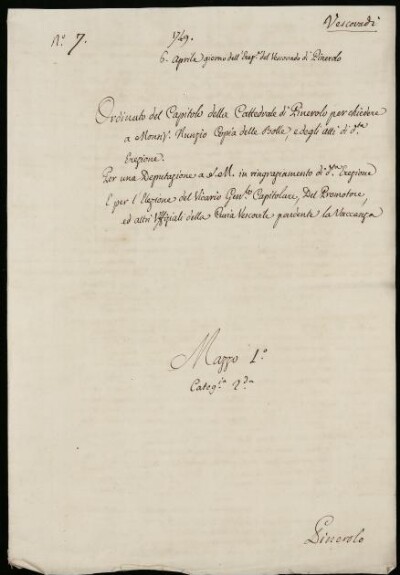 Vescovadi
N.º 7.
1749.
6. Aprile giorno dell'Erez.e del Vescovado di Pinerolo
Ordinato del Capitolo della Cattedrale di Pinerolo per chiedere
a Monsi.r Nunzio Copia delle Bolle, e degli atti di d.ta
Erezione.
Per una Deputazione a S. M. in ringraziamento di d.ta Erezione
E per l'Elezione del Vicario Gen.le Capitolare, Del Promotore,
ed altri Uffiziali della Curia Vescovile pendente la Vaccanza
Mazzo 1.º
Categ.ia
Pinerolo